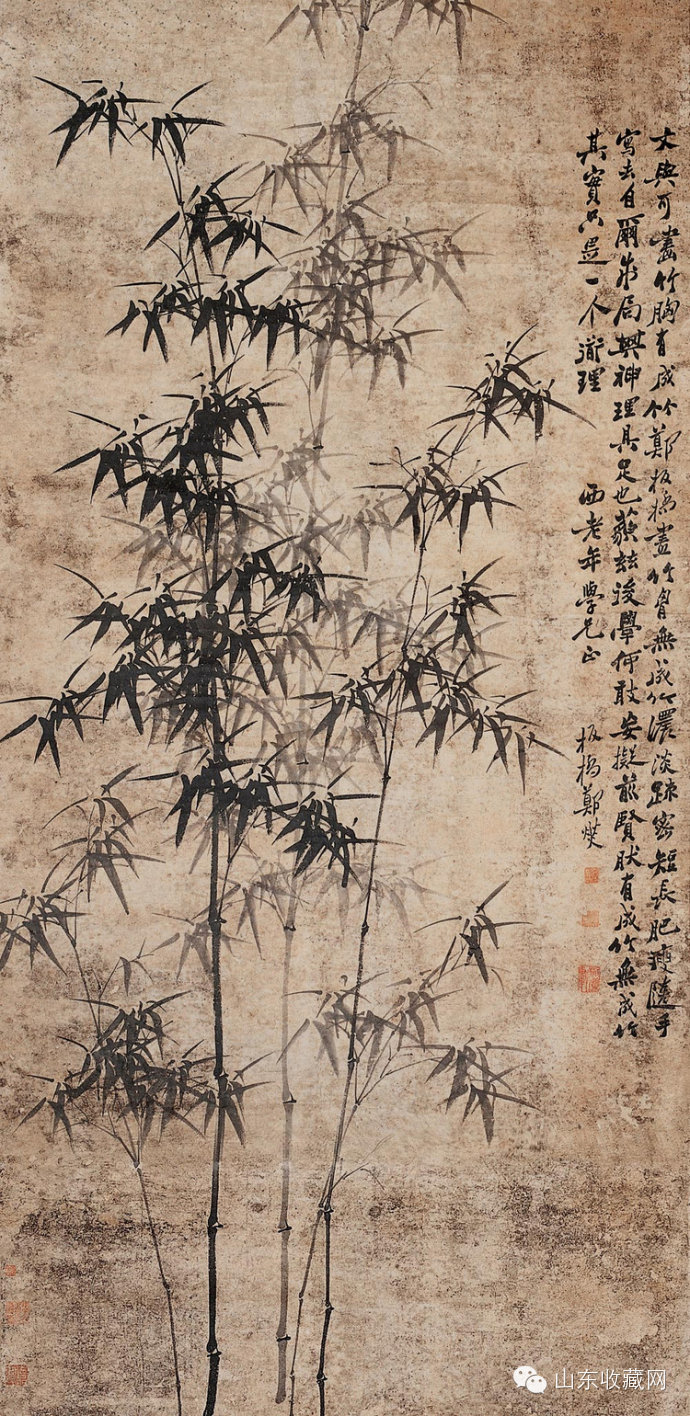 文與可畫竹胸有成竹鄭板橋畫竹胸無成竹濃淡疎密短長肥瘦隨手
寫去自爾成局其神理具足也藐茲後學何敢妄擬前賢肰有成竹無成竹
其實只是一个道理
西老年學兄正
板橋鄭燮
山东收藏网